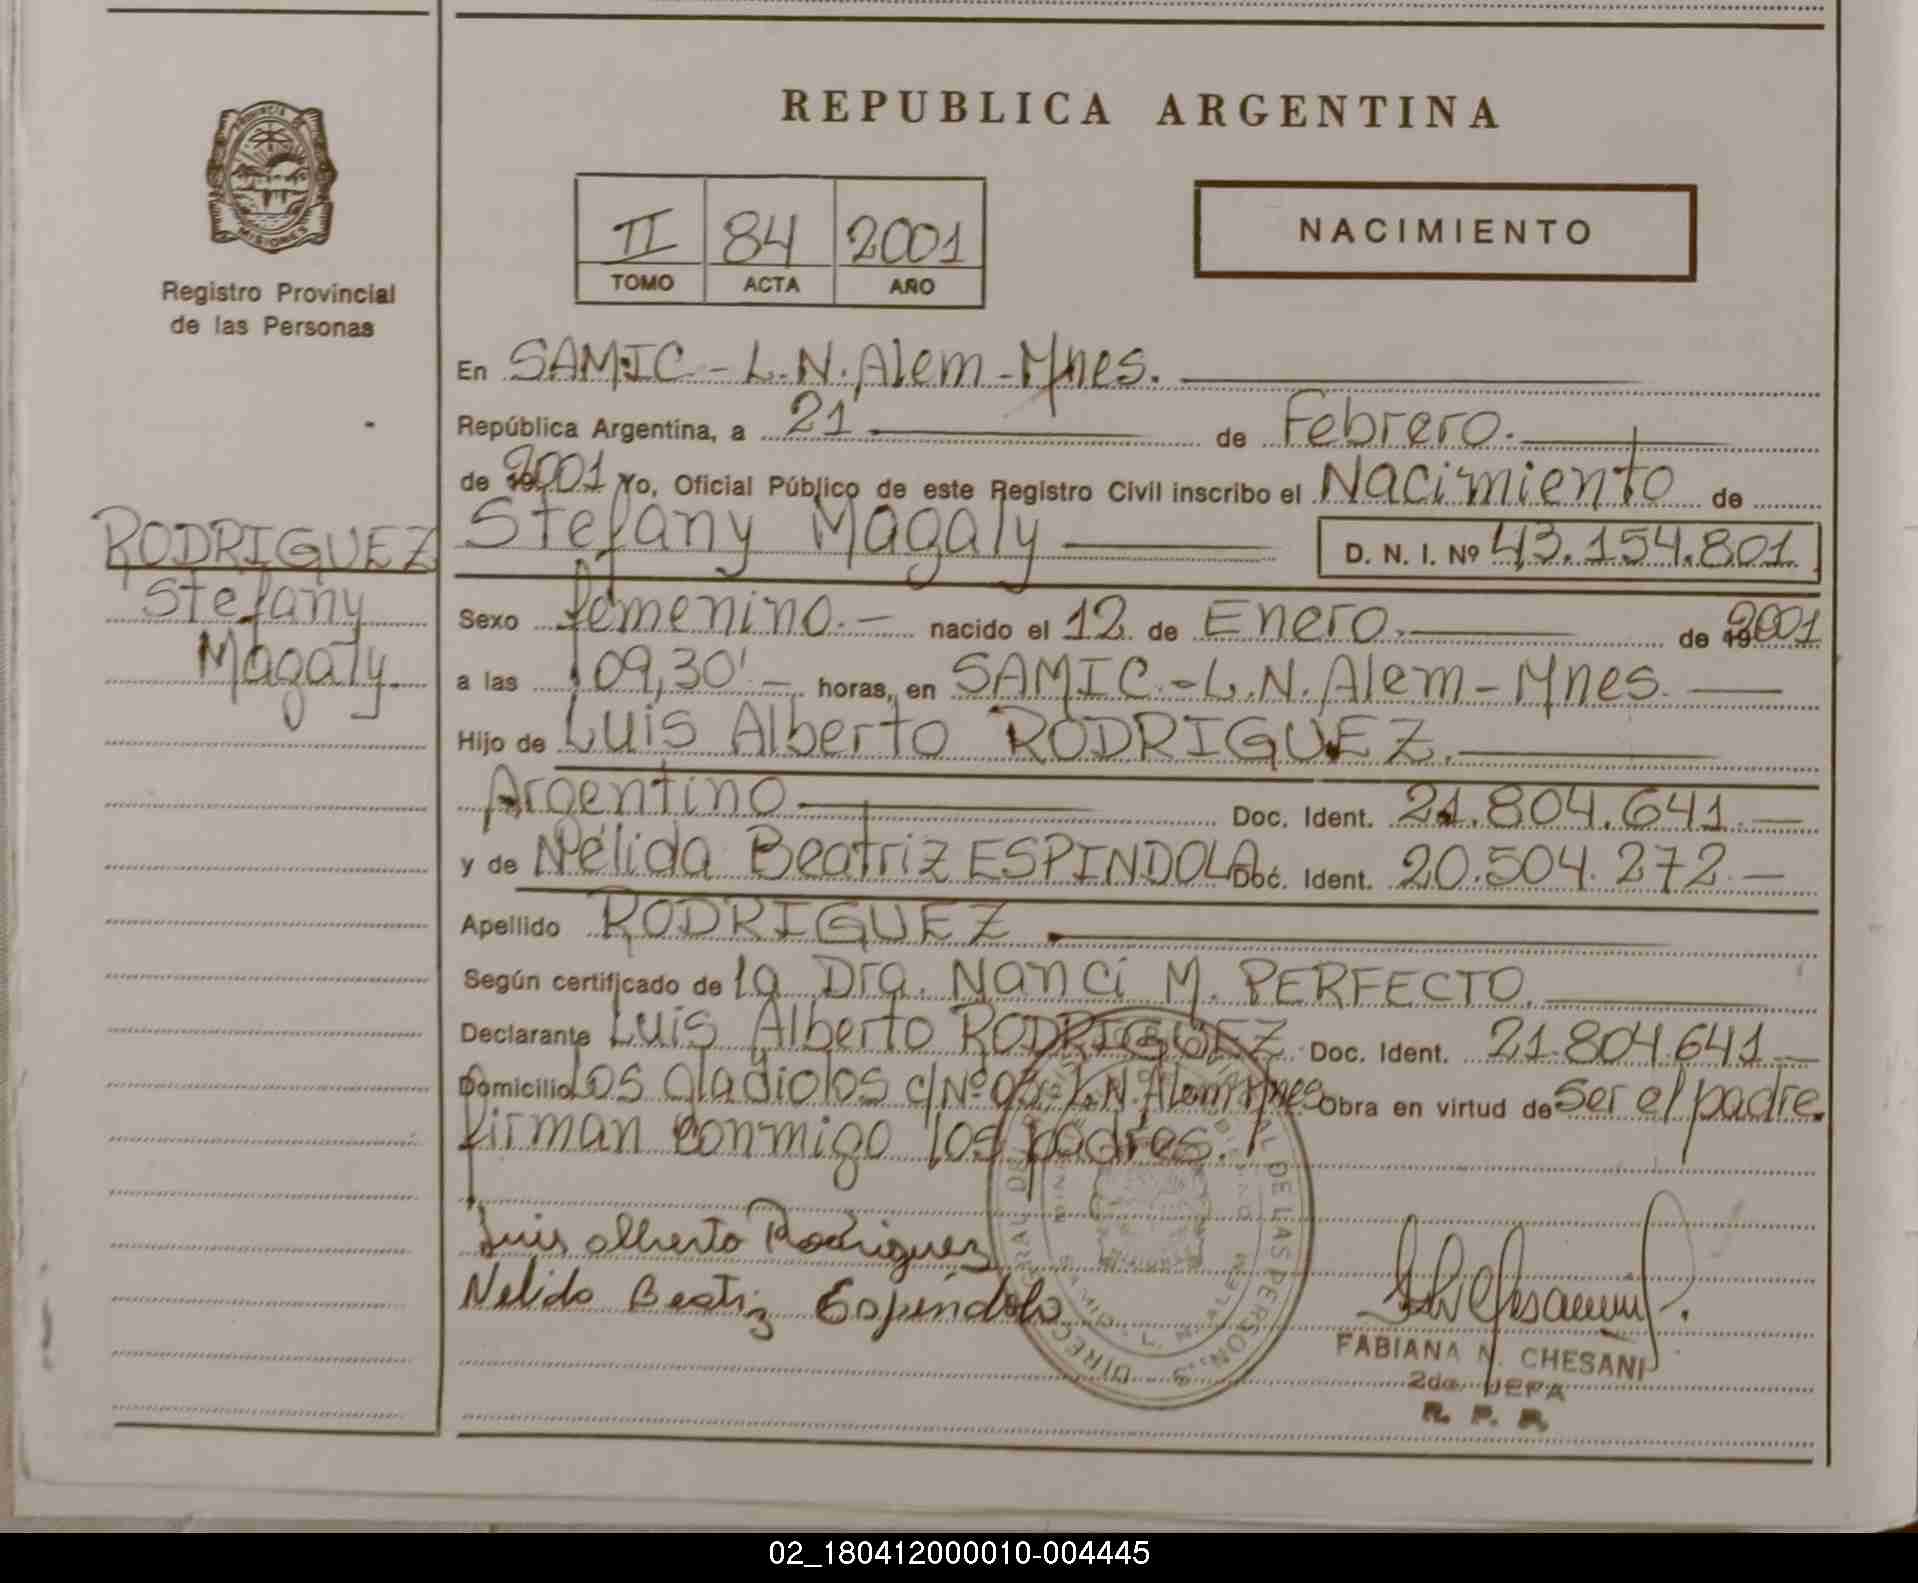 REPUBLICA ARGENTINA
PROVINCIA DE
MISIONES
Registro Provincial
de las Personas
II 84 2001
TOMO ACTA AÑO
NACIMIENTO
En SAMIC - L.N. Alem - Mnes.
República Argentina, a 21 de Febrero.
de 2001 Yo, Oficial Público de este Registro Civil inscribo el Nacimiento de
RODRIGUEZ
Stefany
Magaly.
Stefany Magaly D. N. I. Nº 43.154.801.
Sexo femenino. - nacido el 12 de Enero. de 2001
a las 09,30' - horas, en SAMIC. - L.N. Alem - Mnes.
Hijo de Luis Alberto RODRIGUEZ.
Argentino Doc. Ident. 21.804.641. -
y de Nélida Beatriz ESPINDOLA Doc. Ident. 20.504.272. -
Apellido RODRIGUEZ
Según certificado de la Dra. Nanci M. PERFECTO.
Declarante Luis Alberto RODRIGUEZ. Doc. Ident. 21.804.641 -
Domicilio Los Gladiolos c/Nº 03 - L.N. Alem Mnes Obra en virtud de ser el padre.
firman conmigo los padres.
Luis Alberto Rodriguez
Nelida Beatriz Espindola
DE LAS PERSONAS
SAMIC - L. N. ALEM
FABIANA N. CHESANI
2da. JEFA
R. P. P.
02_180412000010-004445